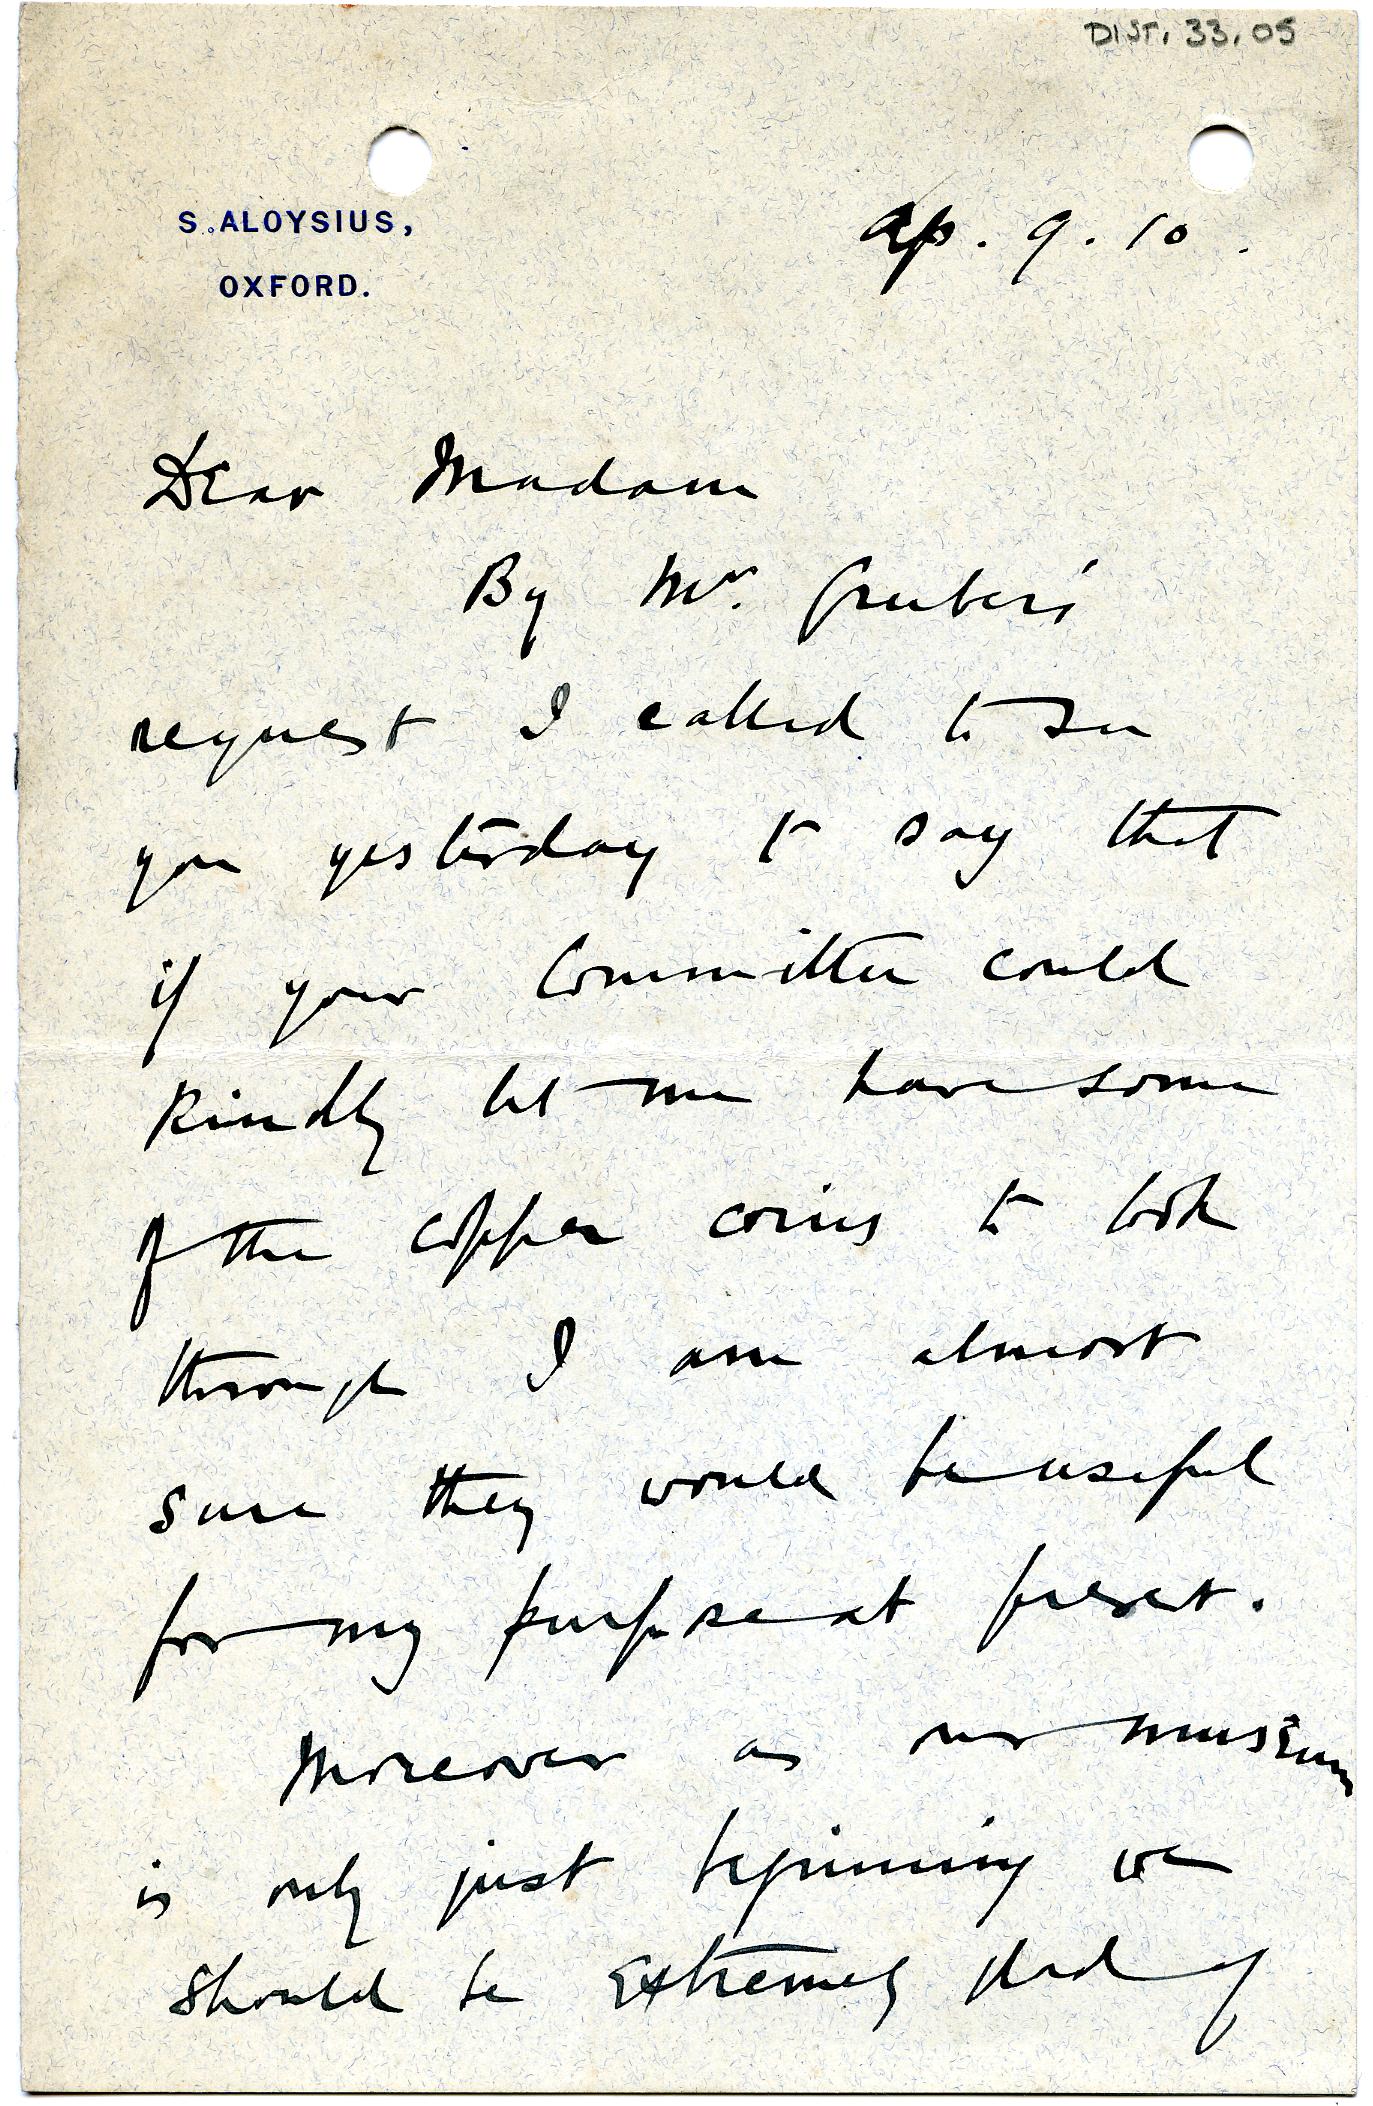 DIST. 33.05
S. ALOYSIUS,
OXFORD.
Ap. 9. 10.
Dear Madam
By Mr. Grueber's
request I called to see
you yesterday to say that
if your Committee could
kindly let me have some
of the copper coins to look
through I am almost
sure they would be useful
for my purpose at present.
Moreover as our museum
is only just beginning we
should be extremely glad of